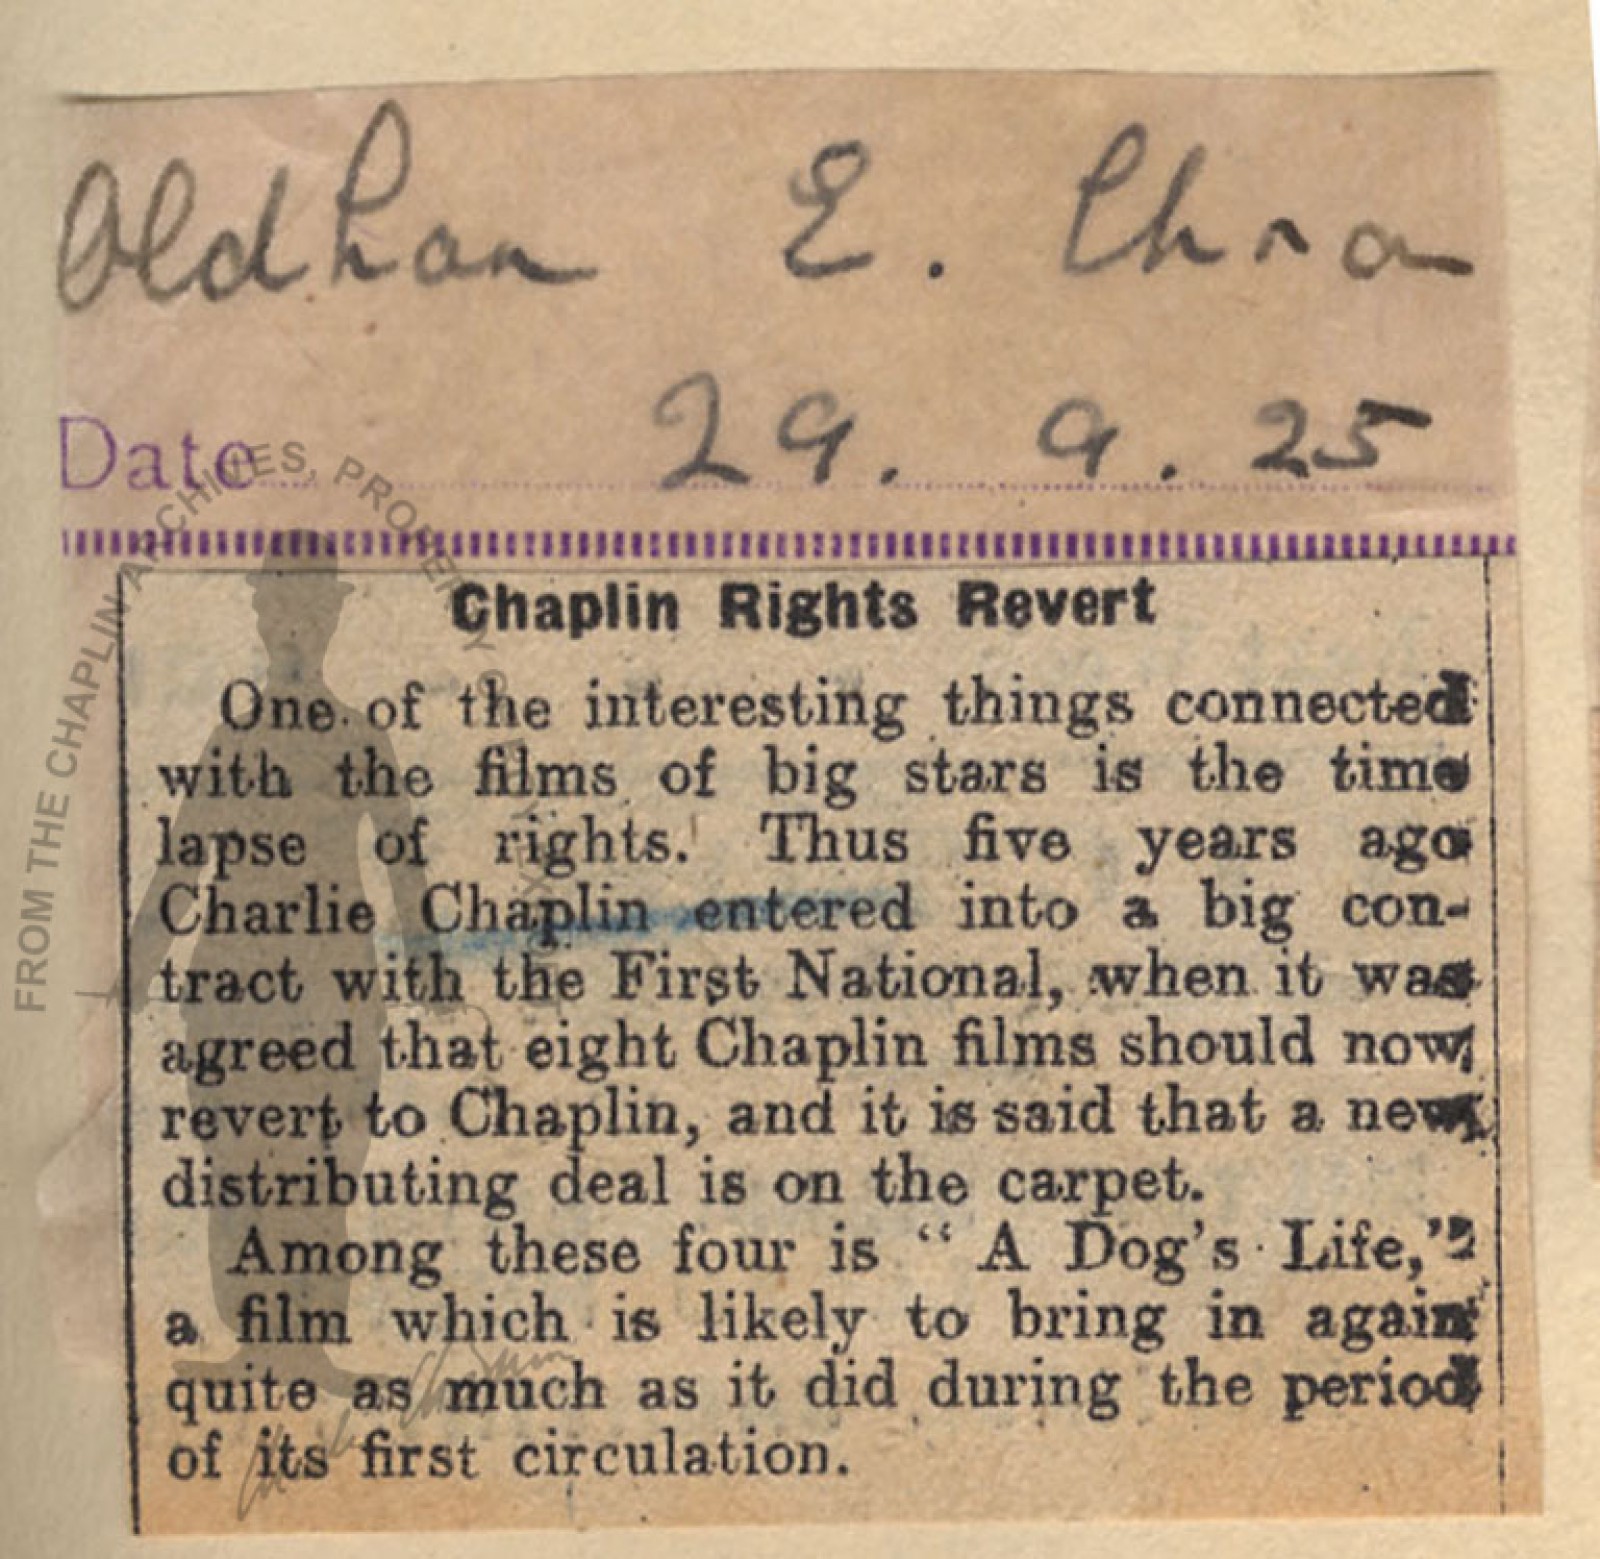 Oldham E. Chron
Date 29. 9. 25
Chaplin Rights Revert
One of the interesting things connected
with the films of big stars is the time
lapse of rights. Thus five years ago
Charlie Chaplin entered into a big con-
tract with the First National, when it was
agreed that eight Chaplin films should now
revert to Chaplin, and it is said that a new
distributing deal is on the carpet.
Among these four is “ A Dog's Life,”
a film which is likely to bring in again
quite as much as it did during the period
of its first circulation.
FROM THE CHAPLIN ARCHIVES, PROPERTY OF